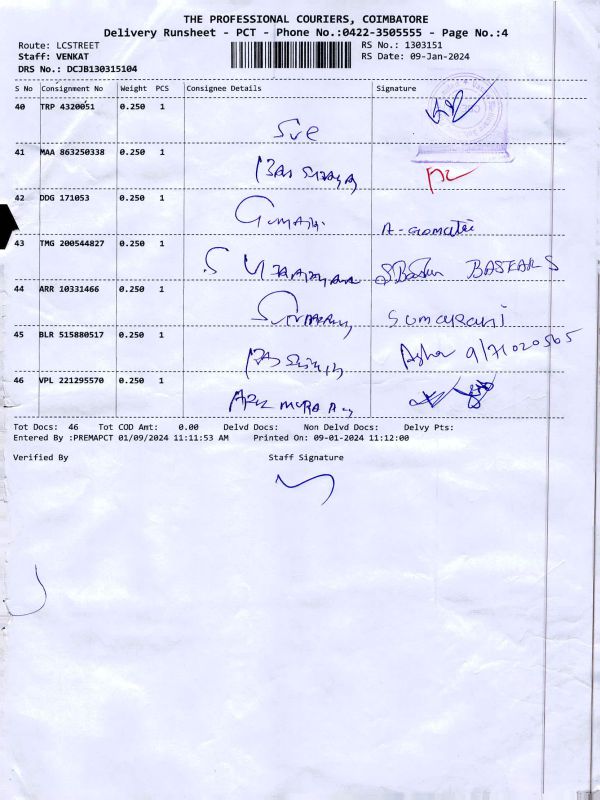 THE PROFESSIONAL COURIERS, COIMBATORE
Delivery Runsheet - PCT - Phone No.:0422-3505555 - Page No.:4
Route: LCSTREET RS No.: 1303151
Staff: VENKAT RS Date: 09-Jan-2024
DRS No.: DCJB130315104
S No Consignment No Weight PCS Consignee Details Signature
40 TRP 4320051 0.250 1
Sve
41 MAA 863250338 0.250 1
42 DDG 171053 0.250 1
A-Gomathi
43 TMG 200544827 0.250 1
S BASKAR S
44 ARR 10331466 0.250 1
Sumayrani
45 BLR 515880517 0.250 1
Asha 9171020565
46 VPL 221295570 0.250 1
Tot Docs: 46 Tot COD Amt: 0.00 Delvd Docs: Non Delvd Docs: Delvy Pts:
Entered By :PREMAPCT 01/09/2024 11:11:53 AM Printed On: 09-01-2024 11:12:00
Verified By Staff Signature